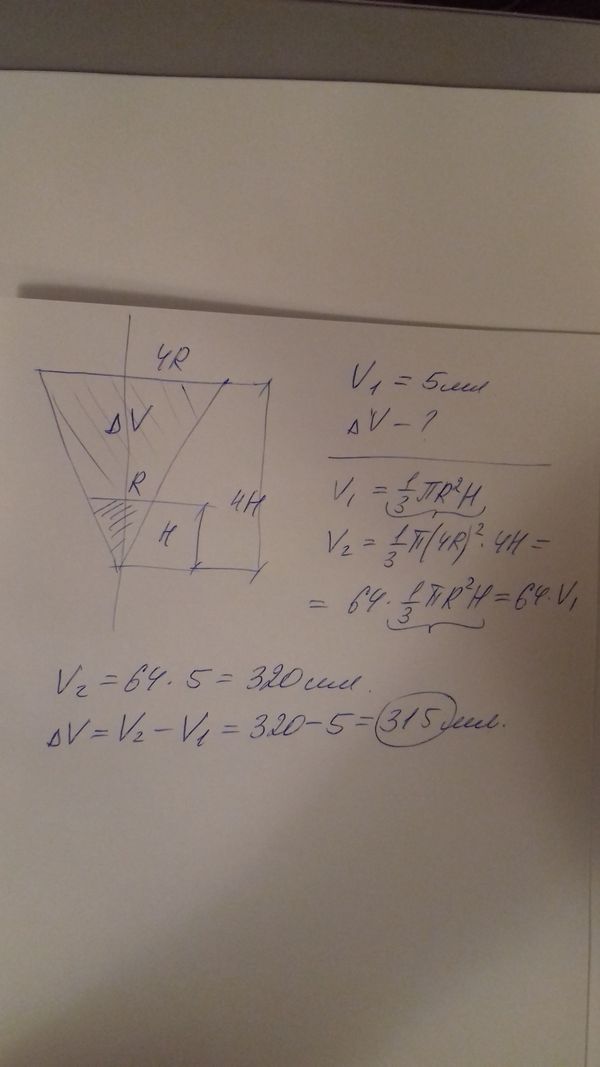 4R
ΔV
R
4H
H
V₁ = 5 мл
ΔV - ?
V₁ = 1/3 πR²H
V₂ = 1/3 π(4R)² · 4H =
= 64 · 1/3 πR²H = 64 · V₁
V₂ = 64 · 5 = 320 мл.
ΔV = V₂ - V₁ = 320 - 5 = 315 мл.